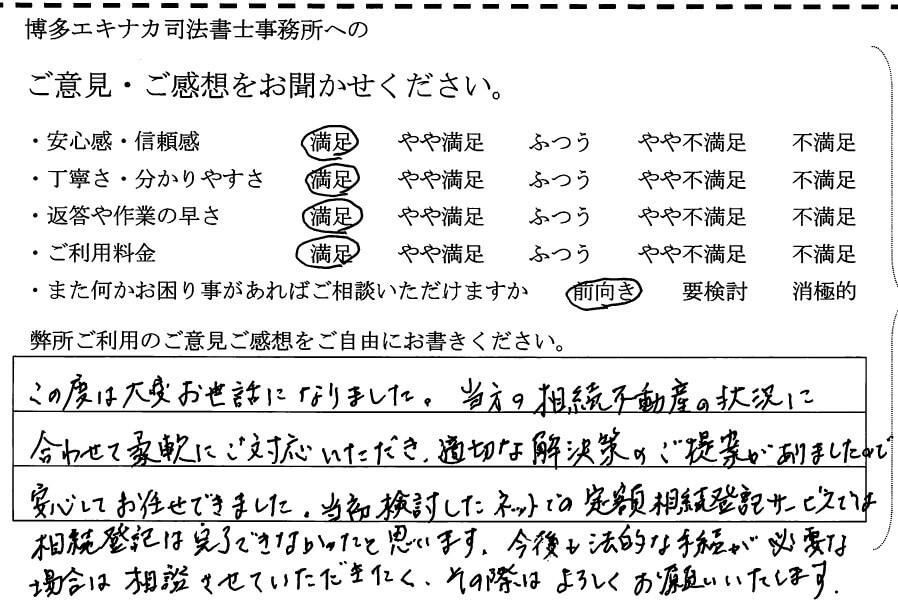 博多エキナカ司法書士事務所への
ご意見・ご感想をお聞かせください。
・安心感・信頼感 満足 やや満足 ふつう やや不満足 不満足
・丁寧さ・分かりやすさ 満足 やや満足 ふつう やや不満足 不満足
・返答や作業の早さ 満足 やや満足 ふつう やや不満足 不満足
・ご利用料金 満足 やや満足 ふつう やや不満足 不満足
・また何かお困り事があればご相談いただけますか 前向き 要検討 消極的
弊所ご利用のご意見ご感想をご自由にお書きください。
この度は大変お世話になりました。当方の相続不動産の状況に
合わせて柔軟にご対応いただき、適切な解決策のご提案がありましたので
安心してお任せできました。当初検討したネットでの定額相続登記サービスでは
相続登記は完了できなかったと思います。今後も法的な手続が必要な
場合は相談させていただきたく、その際はよろしくお願いいたします。